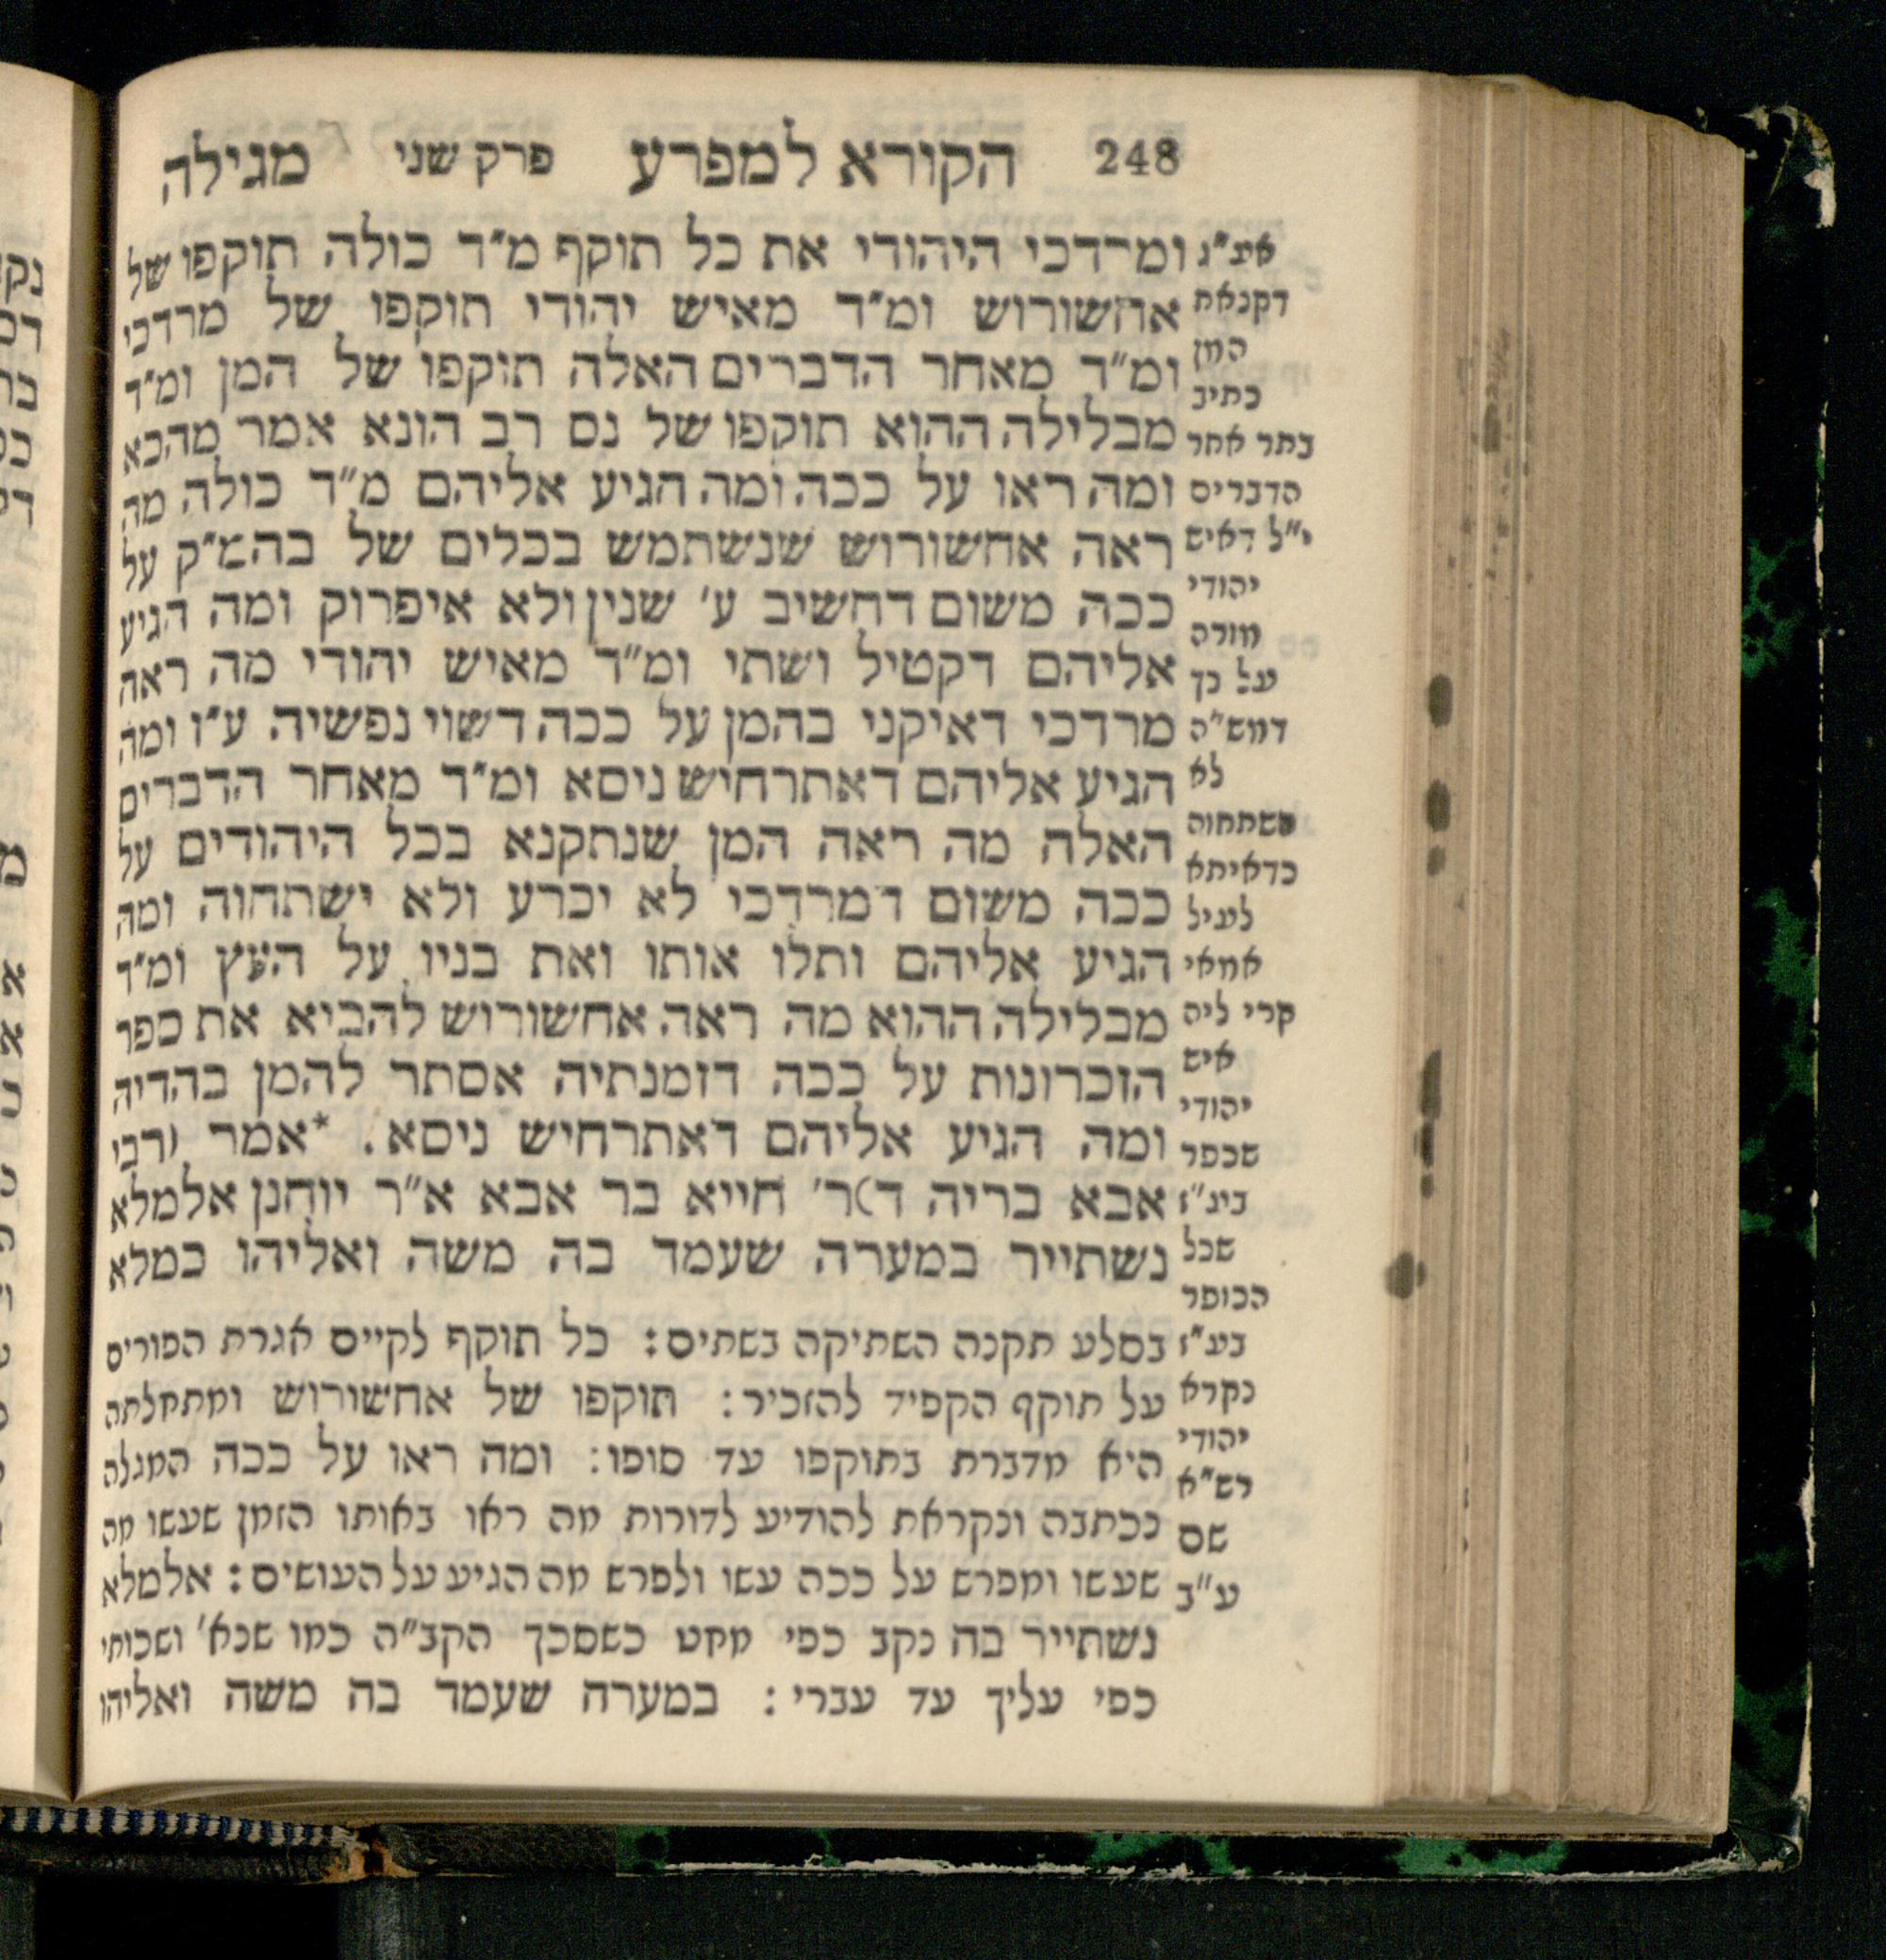 248 הקורא למפרע פרק שני מגילה
ומרדכי היהודי את כל תוקף מ״ד כולה תוקפו של
אחשורוש ומ״ד מאיש יהודי תוקפו של מרדכי
ומ״ד מאחר הדברים האלה תוקפו של המן ומ״ד
מבלילה ההוא תוקפו של נס רב הונא אמר מהכא
ומה ראו על ככה ומה הגיע אליהם מ״ד כולה מה
ראה אחשורוש שנשתמש בכלים של בהמ״ק על
ככה משום דחשיב ע׳ שנין ולא איפרוק ומה הגיע
אליהם דקטיל ושתי ומ״ד מאיש יהודי מה ראה
מרדכי דאיקני בהמן על ככה דשוי נפשיה ע״ו ומה
הגיע אליהם דאתרחיש ניסא ומ״ד מאחר הדברים
האלה מה ראה המן שנתקנא בכל היהודים על
ככה משום דמרדכי לא יכרע ולא ישתחוה ומה
הגיע אליהם ותלו אותו ואת בניו על העץ ומ״ד
מבלילה ההוא מה ראה אחשורוש להביא את ספר
הזכרונות על ככה דזמנתיה אסתר להמן בהדיה
ומה הגיע אליהם דאתרחיש ניסא. *אמר (רבי
אבא בריה ד)ר׳ חייא בר אבא א״ר יוחנן אלמלא
נשתייר במערה שעמד בה משה ואליהו כמלא
בסלע תקנה השתיקה בשתים: כל תוקף לקיים אגרת הפורים
על תוקף הקפיד להזכיר: תוקפו של אחשורוש ומתחלתה
היא מדברת בתוקפו עד סופו: ומה ראו על ככה המגלה
נכתבה ונקראת להודיע לדורות מה ראו באותו הזמן שעשו מה
שעשו ומפרש על ככה עשו ולפרש מה הגיע על העושים: אלמלא
נשתייר בה נקב כפי מחט כשסכך הקב״ה כמו שנא׳ ושכותי
כפי עליך עד עברי: במערה שעמד בה משה ואליהו
דקנאת
המן
כתיב
בתר אחר
הדברים
י״ל דאיש
יהודי
מורה
על כך
דמש״ה
לא
השתחוה
כדאיתא
לעיל
אמאי
קרי ליה
איש
יהודי
שכפר
בע״ז
שכל
הכופר
בע״ז
נקרא
יהודי
רש״א
שם
ע״ב